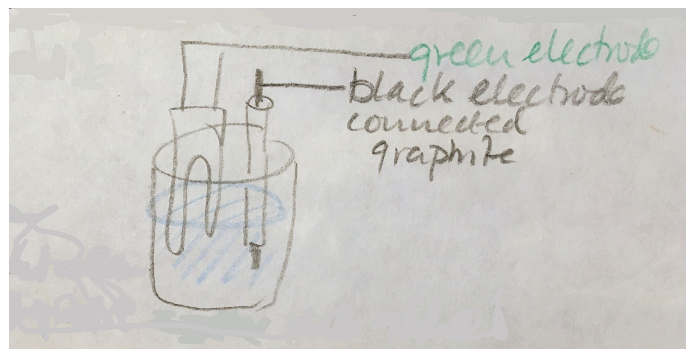 green electrode
black electrode
connected
graphite